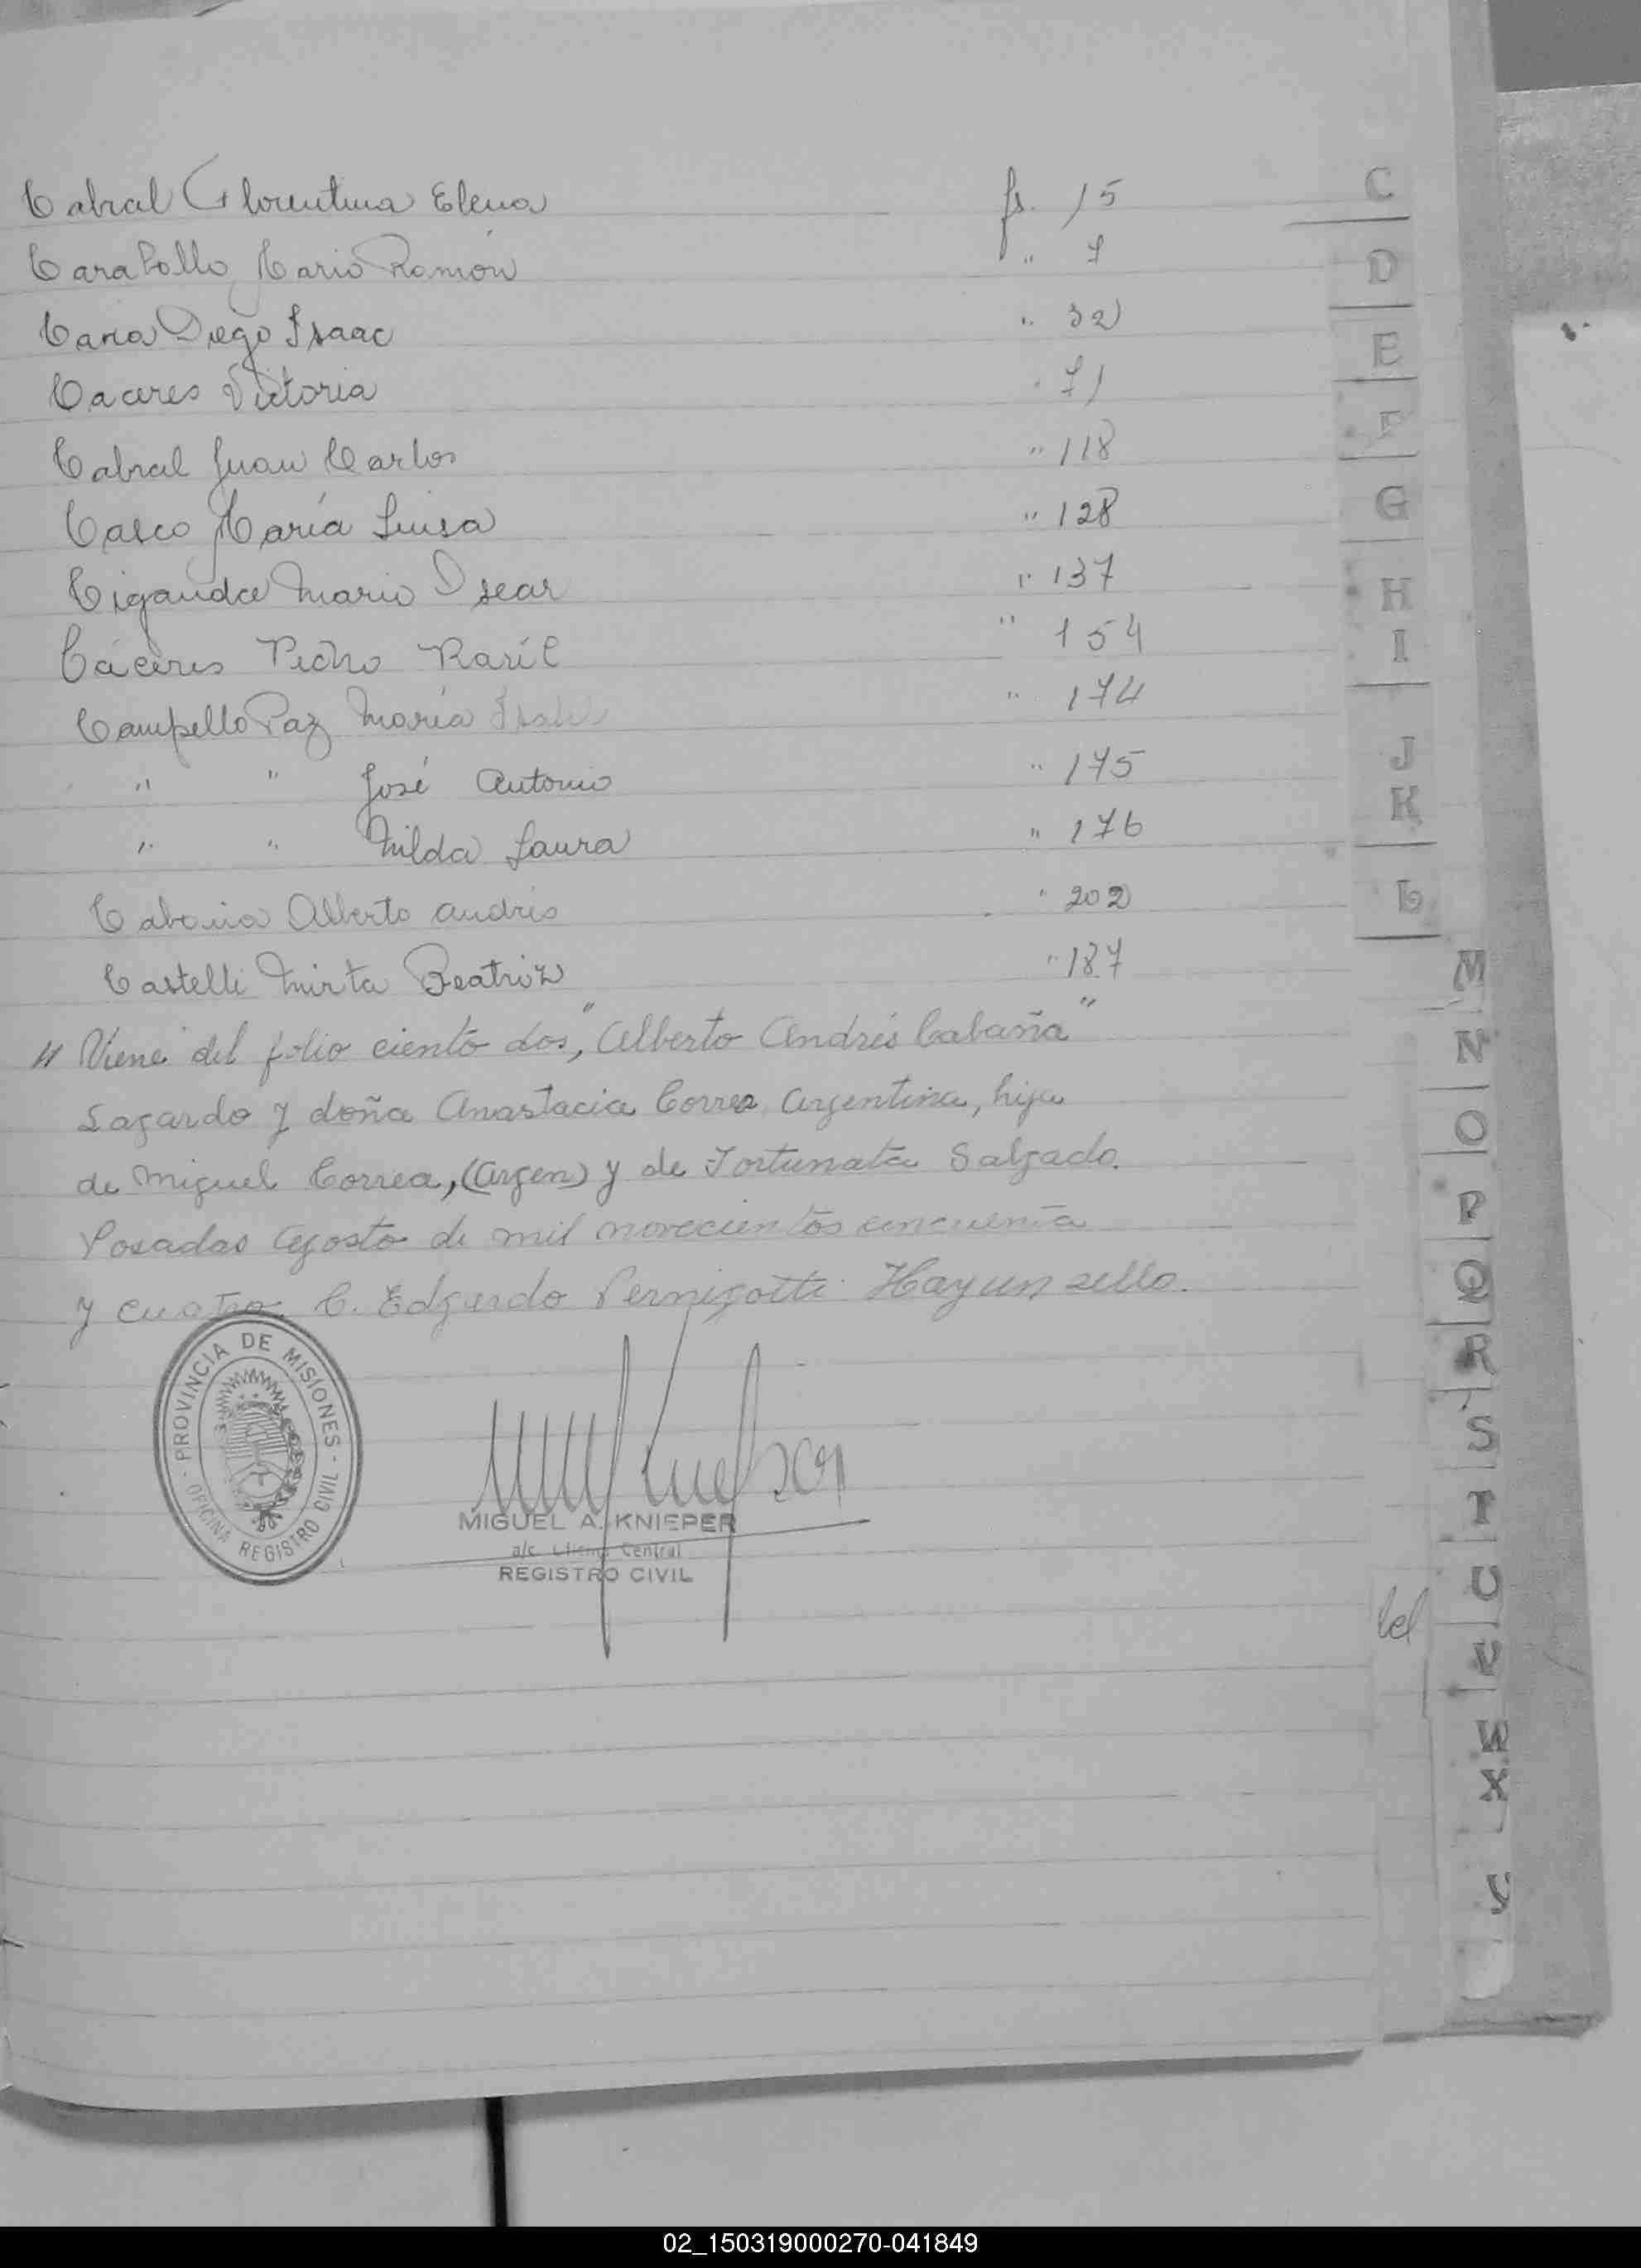 Cabral Florentina Elena fs. 15
Caraballo Mario Ramón " 7
Cano Diego Isaac " 32
Caceres Victoria " 71
Cabral Juan Carlos " 118
Casco María Luisa " 128
Ciganda Mario Oscar " 137
Cáceres Pedro Raúl " 154
Campello Paz María " 174
" " José Antonio " 175
" " Nilda Laura " 176
Cabaña Alberto Andrés " 202
Castelli Mirta Beatriz " 187
" Viene del folio ciento dos, "Alberto Andrés Cabaña"
Sagardo y doña Anastacia Correa, Argentina, hija
de Miguel Correa, (Argen) y de Fortunata Salgado.
Posadas Agosto de mil novecientos cincuenta
y cuatro C. Edgardo Pernigotti. Hay un sello.
PROVINCIA DE MISIONES
OFICINA REGISTRO CIVIL
MIGUEL A. KNIEPER
a/c Oficina Central
REGISTRO CIVIL
C
D
E
F
G
H
I
J
K
L
M
N
O
P
Q
R
S
T
U
V
W
X
02_150319000270-041849